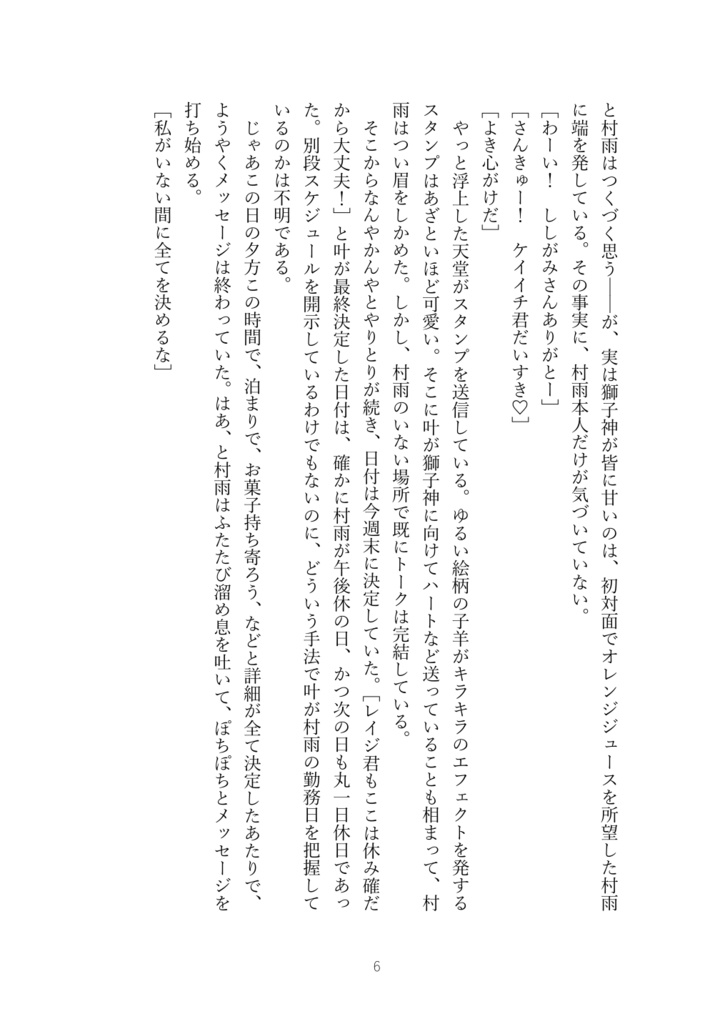 と村雨はつくづく思う――が、実は獅子神が皆に甘いのは、初対面でオレンジジュースを所望した村雨
に端を発している。その事実に、村雨本人だけが気づいていない。
[わーい！　ししがみさんありがとー]
[さんきゅー！　ケイイチ君だいすき♡]
[よき心がけだ]
　やっと浮上した天堂がスタンプを送信している。ゆるい絵柄の子羊がキラキラのエフェクトを発する
スタンプはあざといほど可愛い。そこに叶が獅子神に向けてハートなど送っていることも相まって、村
雨はつい眉をしかめた。しかし、村雨のいない場所で既にトークは完結している。
　そこからなんやかんやとやりとりが続き、日付は今週末に決定していた。[レイジ君もここは休み確だ
から大丈夫！]と叶が最終決定した日付は、確かに村雨が午後休の日、かつ次の日も丸一日休日であっ
た。別段スケジュールを開示しているわけでもないのに、どういう手法で叶が村雨の勤務日を把握して
いるのかは不明である。
　じゃあこの日の夕方この時間で、泊まりで、お菓子持ち寄ろう、などと詳細が全て決定したあたりで、
ようやくメッセージは終わっていた。はあ、と村雨はふたたび溜め息を吐いて、ぽちぽちとメッセージを
打ち始める。
[私がいない間に全てを決めるな]
6